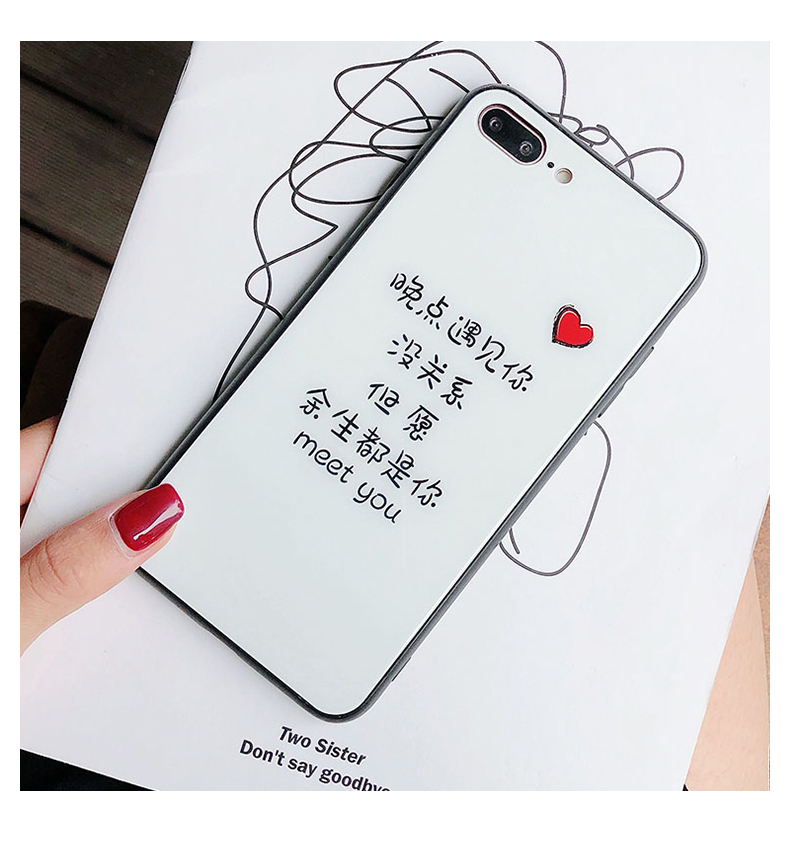 晚点遇见你
没关系
但愿
余生都是你
meet you
Two Sister
Don't say goodbye